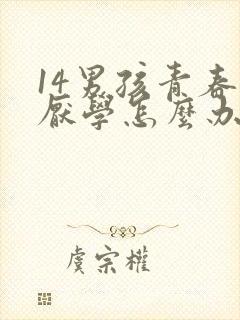 14男孩青春
厭學怎麼办
虞宗權